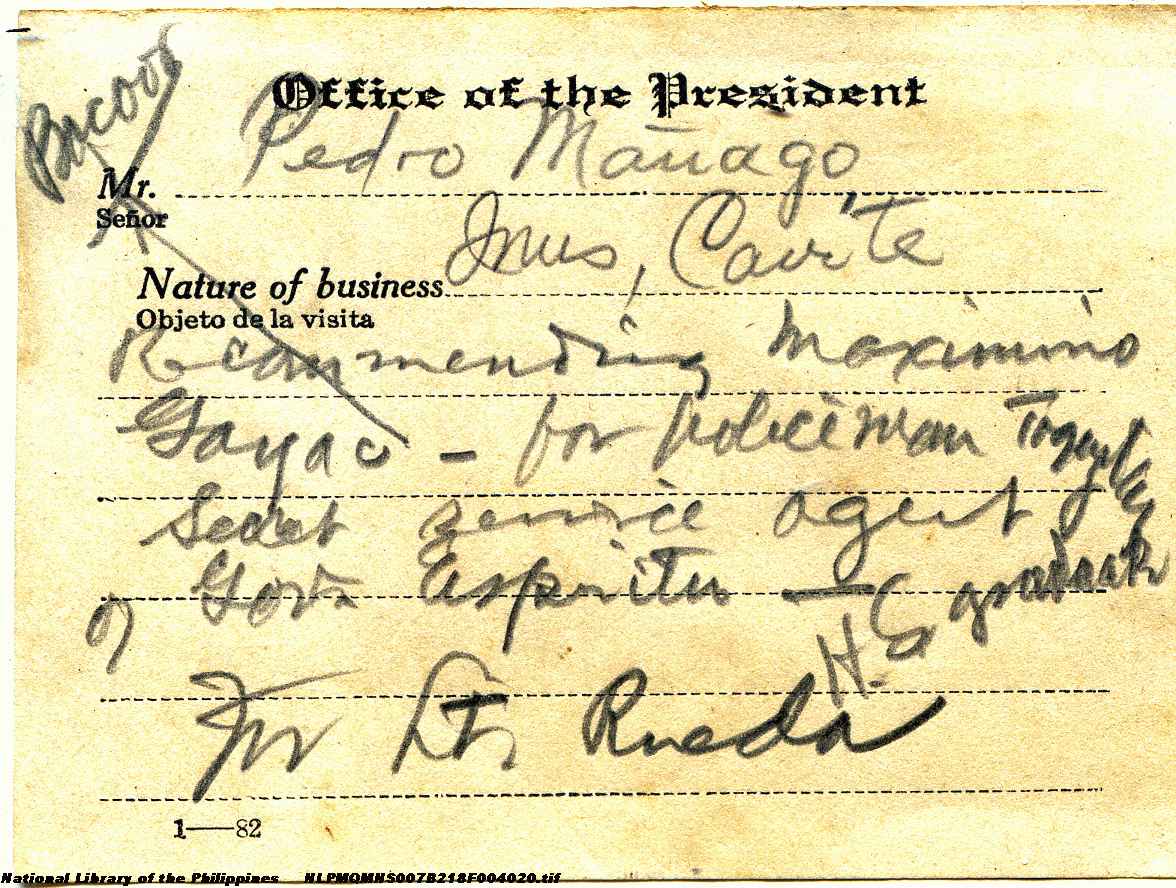 Bacoor
Office of the President
Pedro Mañago,
Mr.
Señor
Imus, Cavite
Nature of business
Objeto de la visita
Recommending Maximino
Gayac - for policeman
Secret service agent
of Gov. Espiritu — H.S. graduate
For Lt. Rueda
1—82
National Library of the Philippines NLPMQMNS007B218F004020.tif